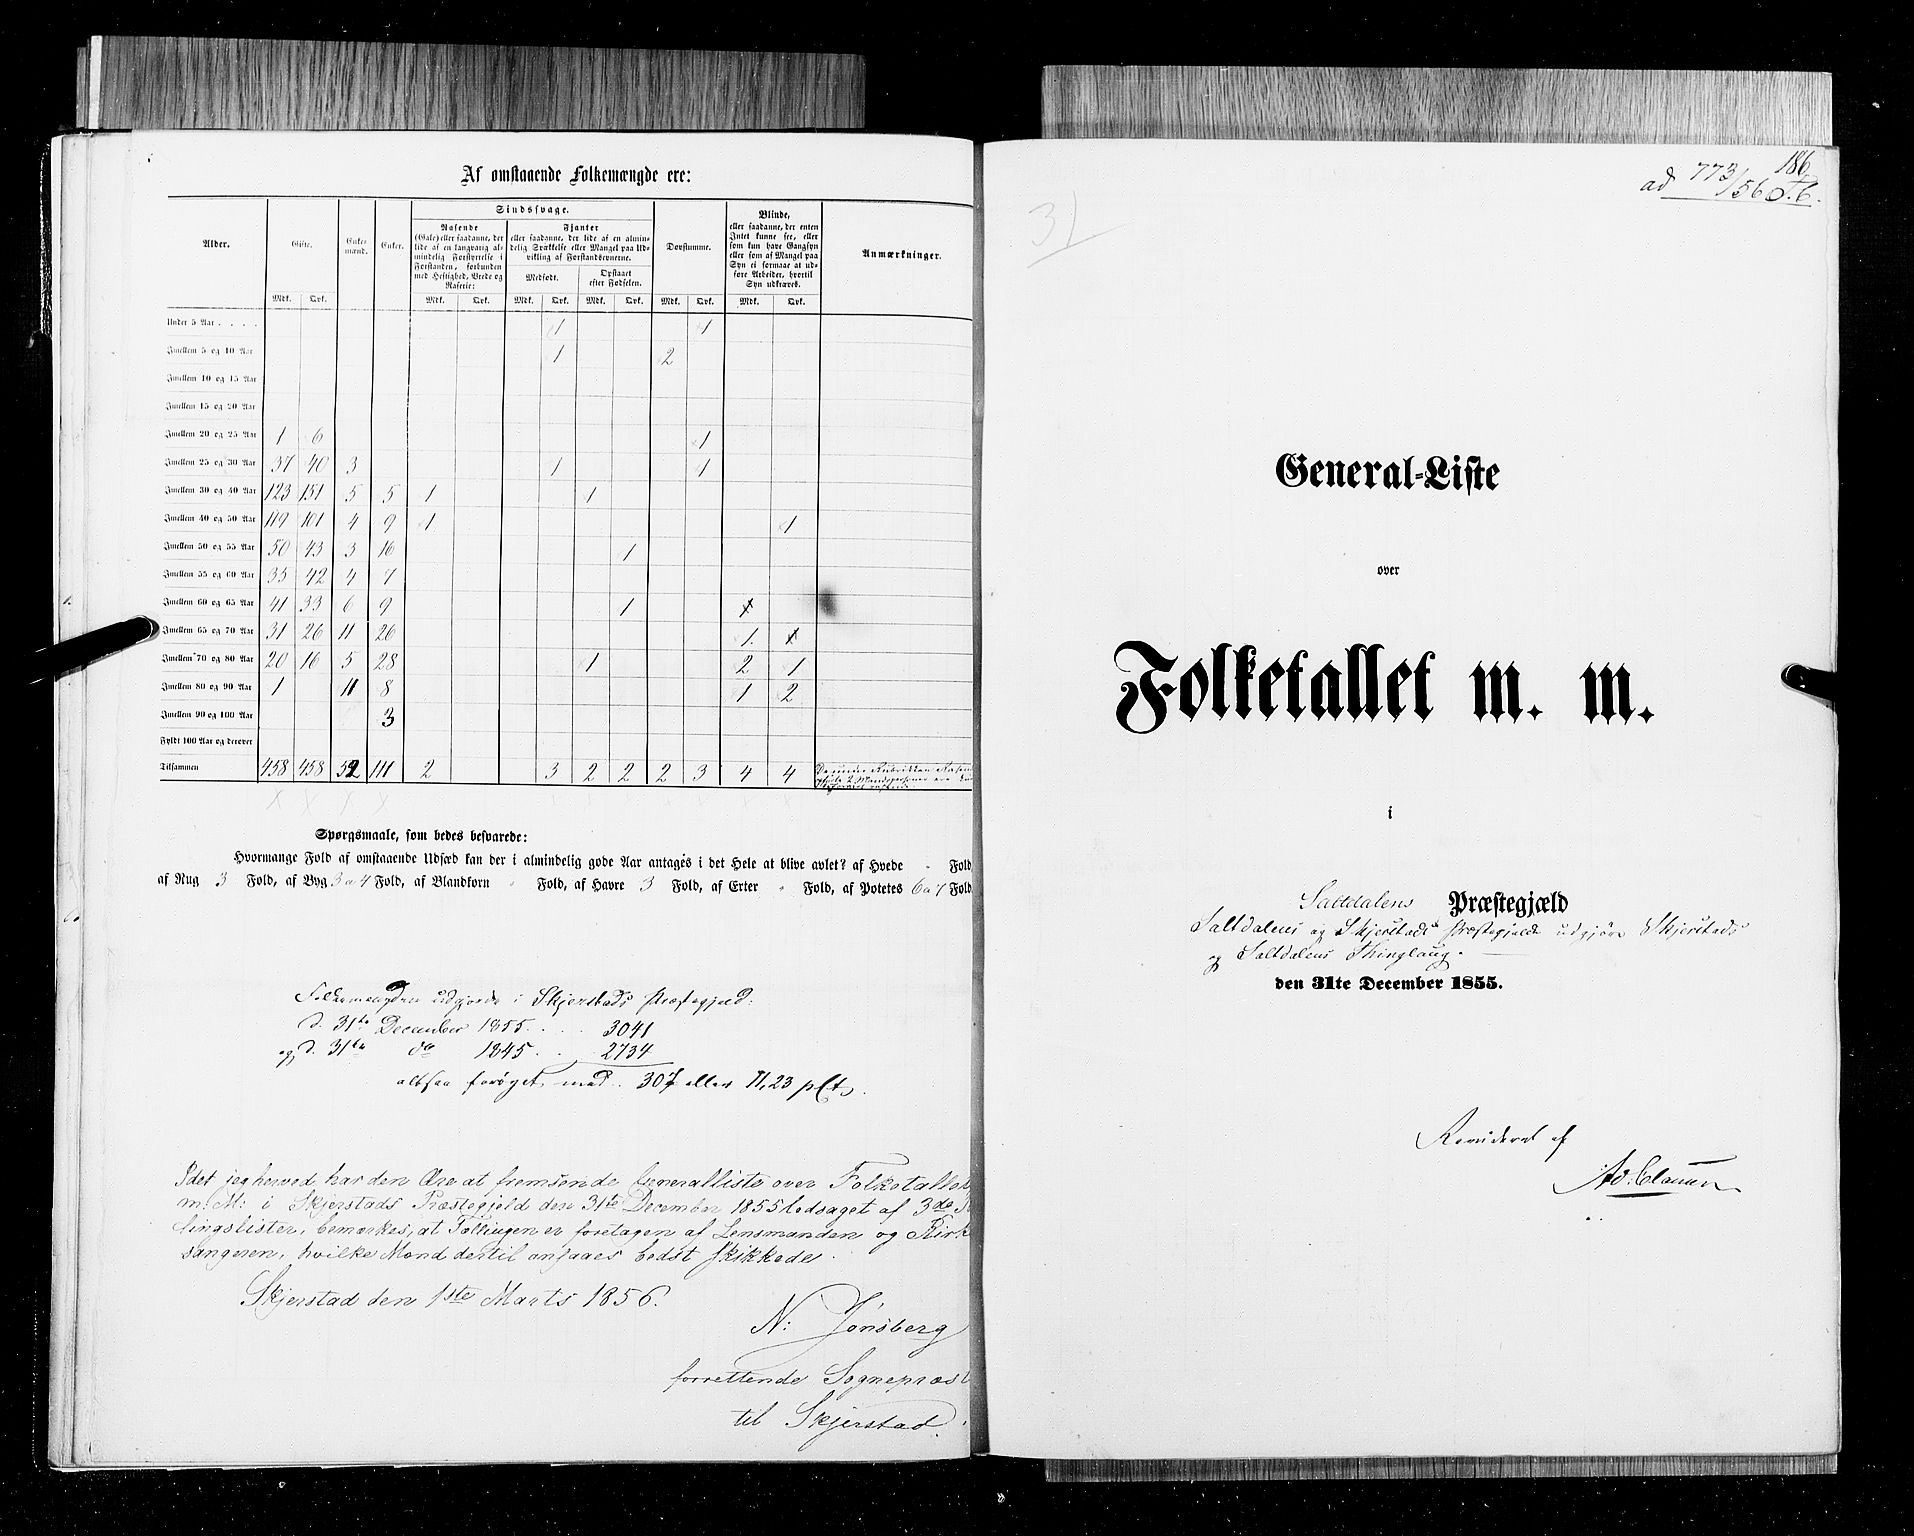 Af omstaaende Folkemængde ere:
Alder.
Gifte.
Enkemænd.
Enker.
Sindssvage.
Rasende (Gale) eller saadanne, der lide af en langvarig almindelig Forstyrrelse i Forstanden, forbunden med Heftighed, Vrede og Raseri:
Fjanter eller saadanne, der lide af en almindelig Svækkelse eller Mangel paa Udvikling af Forstandsevnerne.
Medfødt.
Opstaaet efter Fødselen.
Døvstumme.
Blinde, eller saadanne, der enten Intet kunne see, eller som kun have Gangsyn eller som af Mangel paa Syn ei formaae at udføre Arbeider, hvortil Syn udkræves.
Anmærkninger.
Mdk. Qvk. Mdk. Qvk. Mdk. Qvk. Mdk. Qvk. Mdk. Qvk. Mdk. Qvk.
Under 5 Aar . . . . 1 1
Imellem 5 og 10 Aar 1 2
Imellem 10 og 15 Aar
Imellem 15 og 20 Aar
Imellem 20 og 25 Aar 1 6 1
Imellem 25 og 30 Aar 37 40 3 1 1
Imellem 30 og 40 Aar 123 151 5 5 1 1
Imellem 40 og 50 Aar 119 101 4 9 1 1
Imellem 50 og 55 Aar 50 43 3 16 1
Imellem 55 og 60 Aar 35 42 4 7
Imellem 60 og 65 Aar 41 33 6 9 1
Imellem 65 og 70 Aar 31 26 11 26 1
Imellem 70 og 80 Aar 20 16 5 28 1 2 1
Imellem 80 og 90 Aar 1 11 8 1 2
Imellem 90 og 100 Aar 3
Fyldt 100 Aar og derover
Tilsammen 458 458 52 111 2 3 2 2 2 3 4 4
Spørgsmaale, som bedes besvarede:
Hvormange Fold af omstaaende Udsæd kan der i almindelig gode Aar antages i det Hele at blive avlet? af Hvede " Fold
af Rug 3 Fold, af Byg 3 a 4 Fold, af Blandkorn " Fold, af Havre 3 Fold, af Erter " Fold, af Potetes 6 a 7 Fold
Folkemængden udgjorde i Skjerstads Præstegjeld:
d. 31te December 1855 . . . . 3041
og d. 31te do 1845 . . . 2734
altsaa forøget med . 307 eller 11,23 pCt.
Idet jeg herved har den Ære at fremsende Generalliste over Folketallet
m. M: i Skjerstads Præstegjeld den 31te December 1855 ledsaget af 3de
lingslister, bemærkes, at Tællingen er foretagen af Lensmanden og Kirke
sangeren, hvilke Mænd dertil ansaaes bedst skikkede.
Skjerstad den 1ste Marts 1856.
N: Jønsberg
forrettende Sognepræst
til Skjerstad.
31
186
ad 773/56
General-Liste
over
Folketallet m. m.
i
Saltdalens Præstegjæld
Saltdalens og Skjerstads Præstegjelde udgjøre Skjerstads
og Saltdalens Thinglaug.
den 31te December 1855.
Revideret af
Ad: Clausen